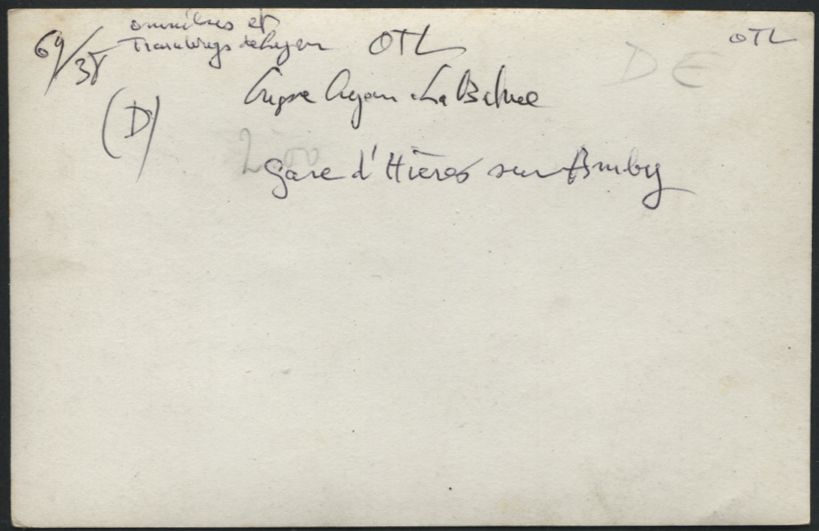 69/38 omnibus et OTL OTL
Tramways de Lyon
DE
Ligne Lyon - La Balme
(D)
gare d'Hières sur Amby